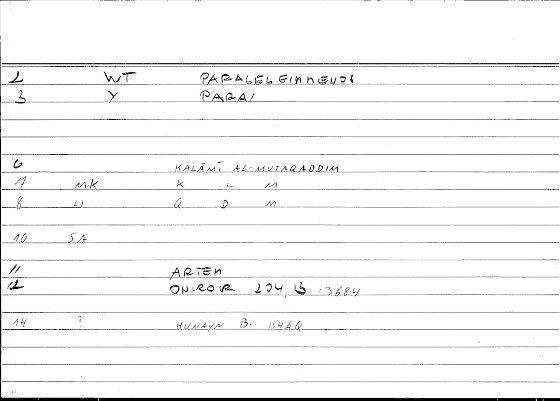 2 WT PARALELEIMMENOS
3 Y PARA/
6 KALĀMĪ AL-MUTAQADDIM
7 M.K K L M
8 LI Q D M
10 SA
11 ARTEM
12 ONIROIR 204, 13 -368.4
14 ? HUNAYN B. ISHĀQ